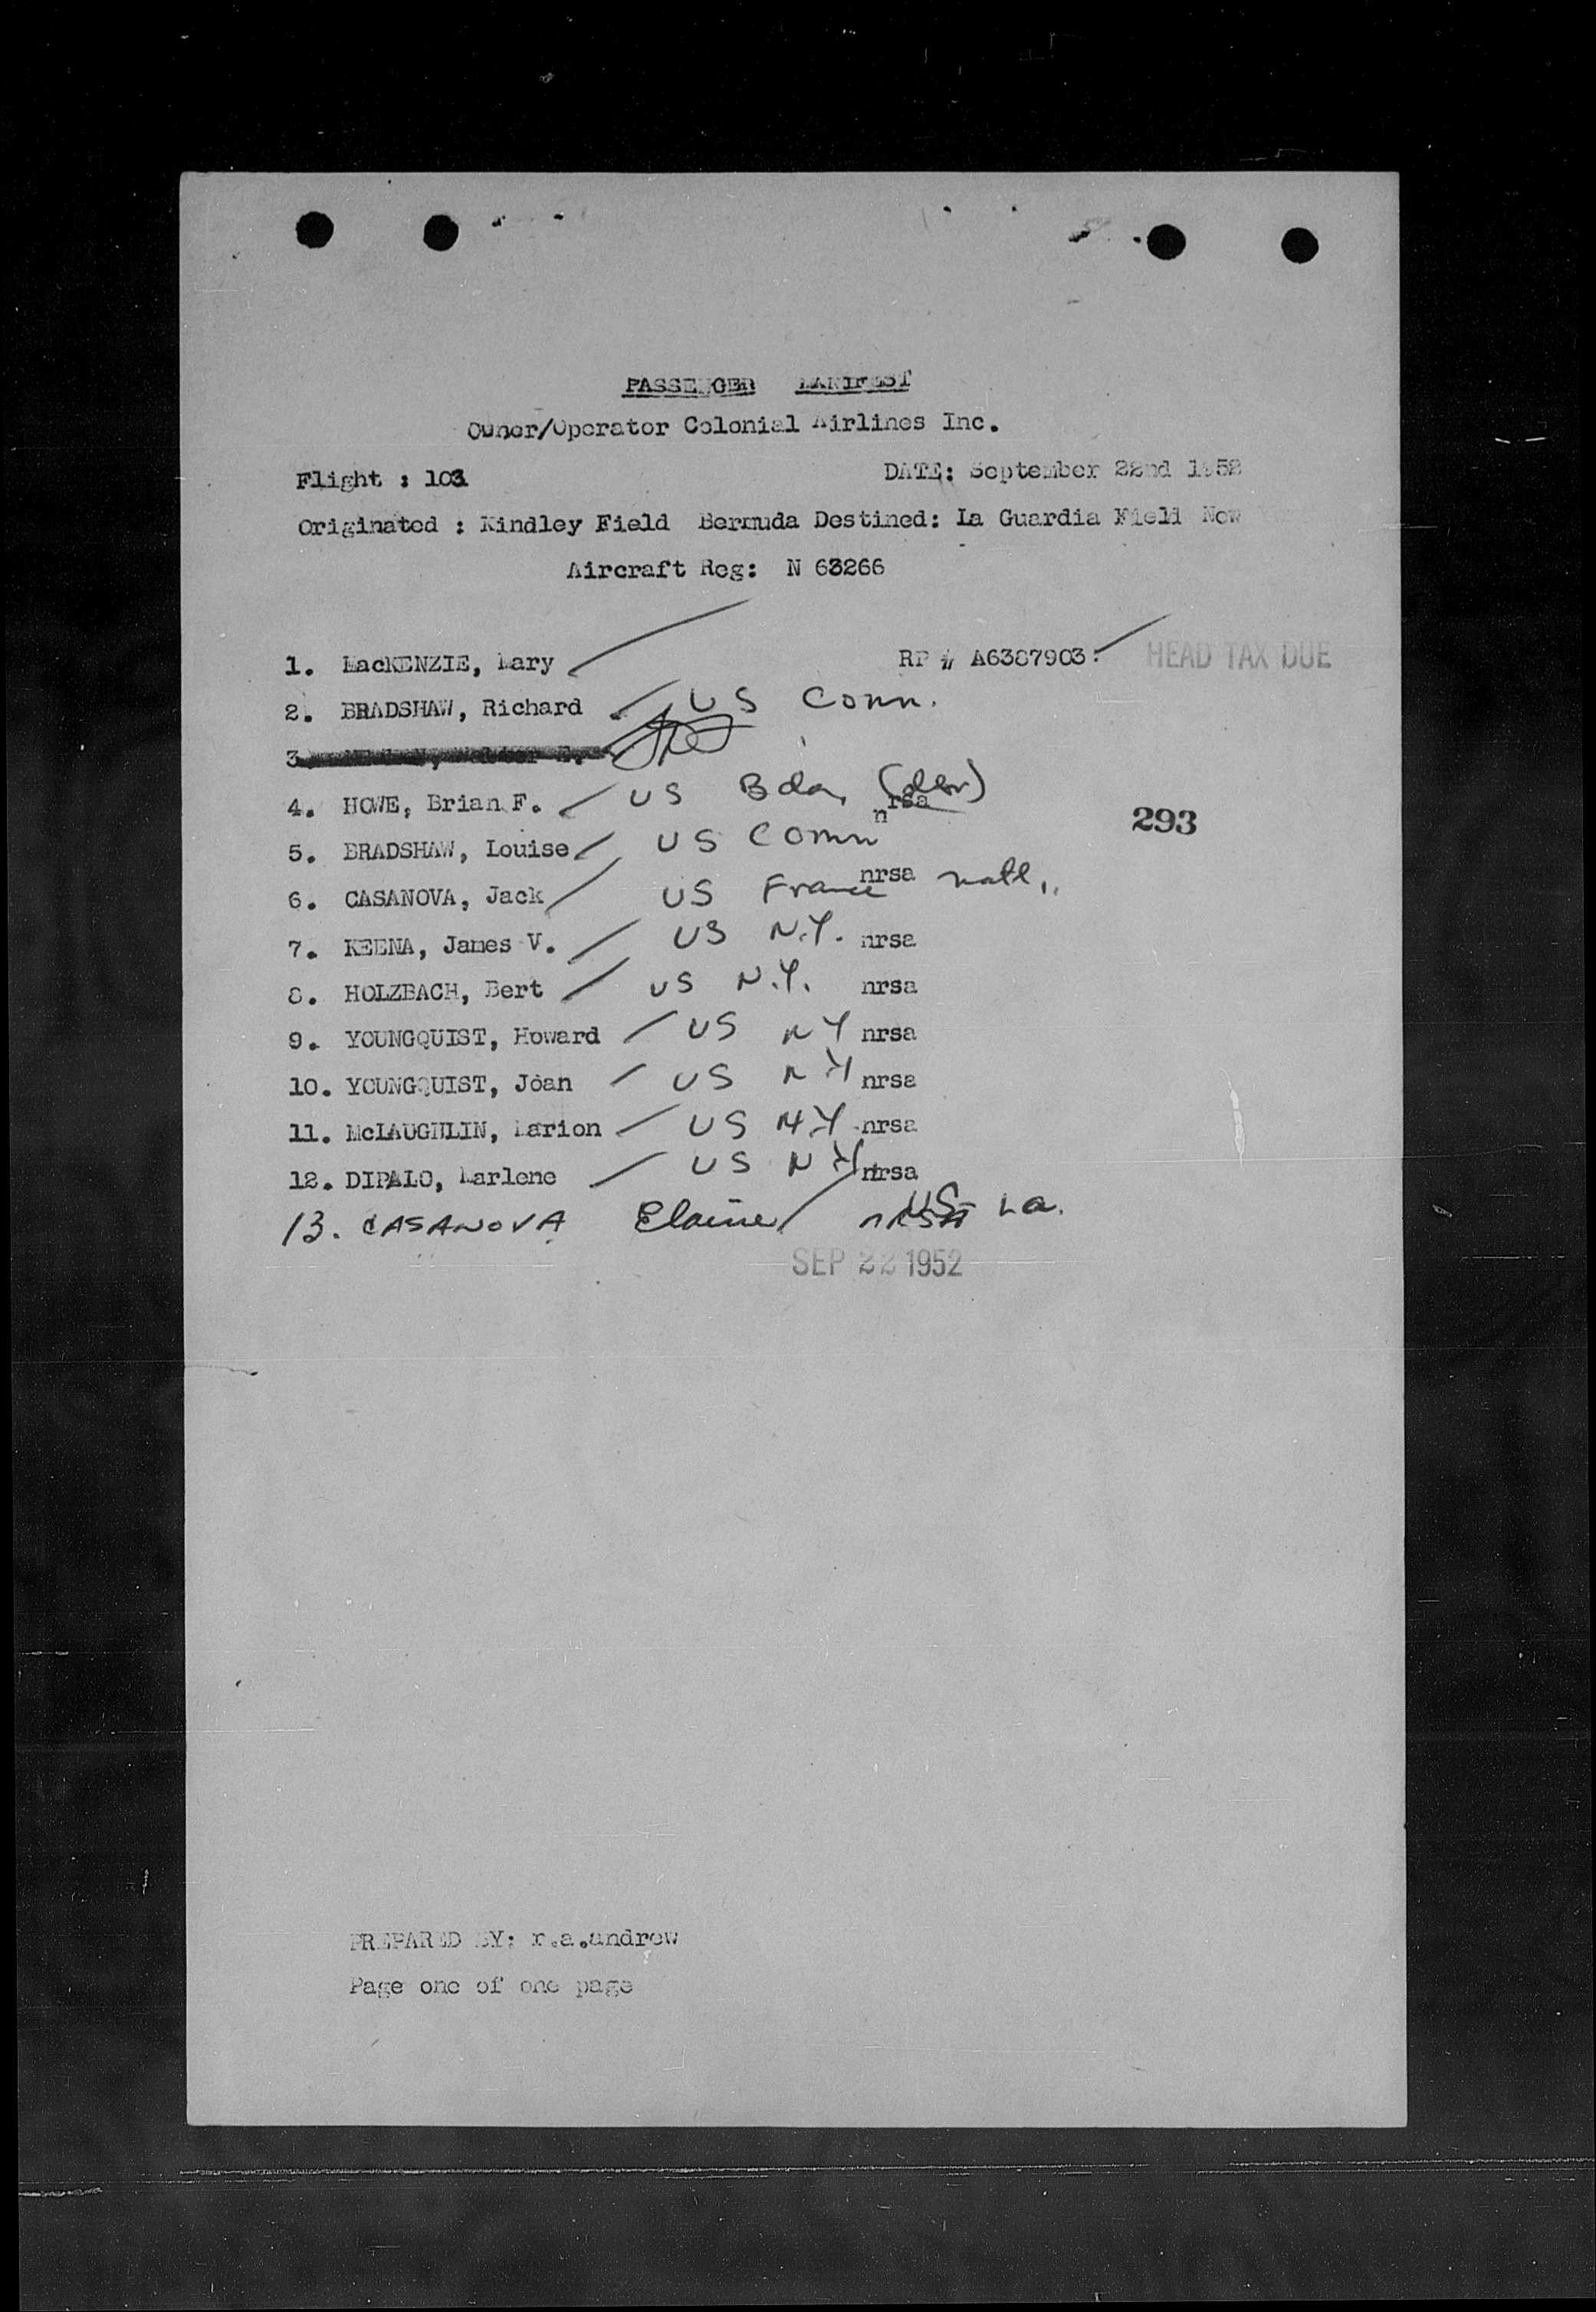 PASSENGER MANIFEST
Owner/Operator Colonial Airlines Inc.
Flight : 103 DATE: September 22nd 1952
Originated : Kindley Field Bermuda Destined: La Guardia Field New
Aircraft Reg: N 63266
1. MacKENZIE, Mary RP # A6387903. HEAD TAX DUE
2. BRADSHAW, Richard US Conn.
3.
4. HOWE, Brian F. US Bda, nrsa
293
5. BRADSHAW, Louise US Conn
6. CASANOVA, Jack US France nrsa natl.
7. KEENA, James V. US N.Y. nrsa
8. HOLZBACH, Bert US N.Y. nrsa
9. YOUNGQUIST, Howard US NY nrsa
10. YOUNGQUIST, Joan US NY nrsa
11. McLAUGHLIN, Marion US N.Y nrsa
12. DIPALO, Marlene US NY nrsa
13. CASANOVA Elaine US La.
SEP 22 1952
PREPARED BY: r.a.andrew
Page one of one page